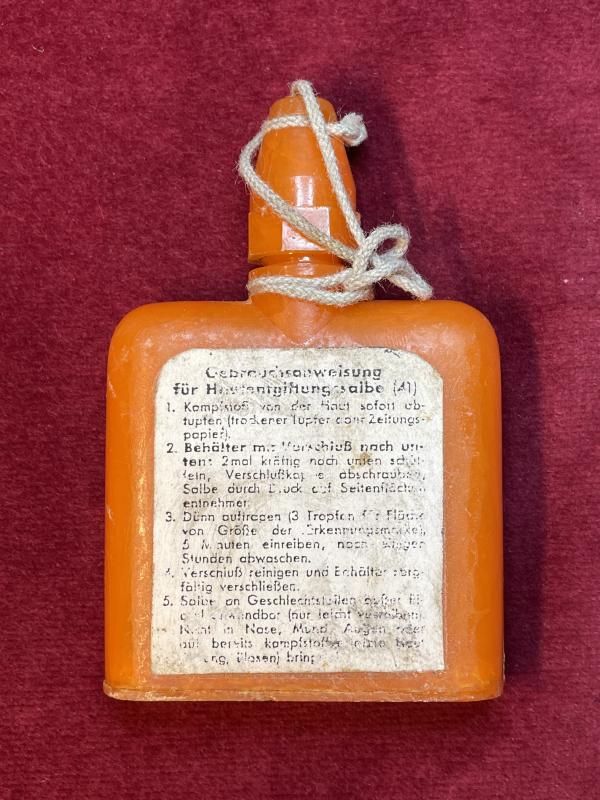 Gebrauchsanweisung
für Hautentgiftungssalbe (41)
1. Kampfstoff von der Haut sofort ab-
tupfen (trockener Tupfer oder Zeitungs-
papier).
2. Behälter mit Verschluß nach un-
ten: 2mal kräftig nach unten schüt-
teln, Verschlußkappe abschrauben,
Salbe durch Druck auf Seitenflächen
entnehmen.
3. Dünn auftragen (3 Tropfen für Fläche
von Größe der Erkennungsmarke),
5 Minuten einreiben, nach einigen
Stunden abwaschen.
4. Verschluß reinigen und Behälter sorg-
fältig verschließen.
5. Salbe an Geschlechtsteilen außer
anwendbar (nur leicht verreiben).
Nicht in Nase, Mund, Augen oder
auf bereits kampfstoffverletzte Haut
Blasen)